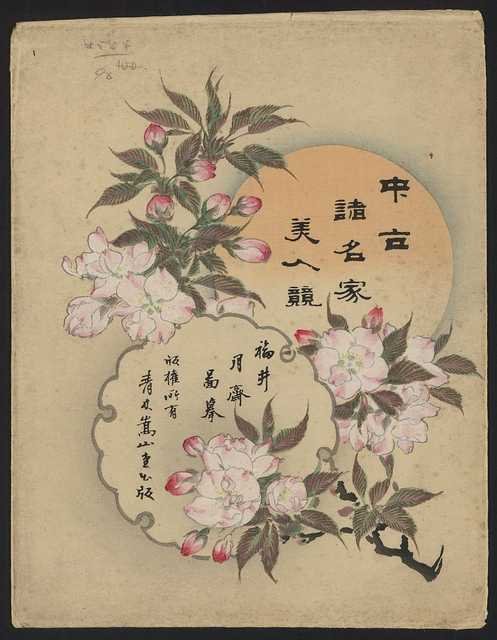 中古
諸名家
美人競
福井
月齋
啚摹
版権所有
青木嵩山堂出版